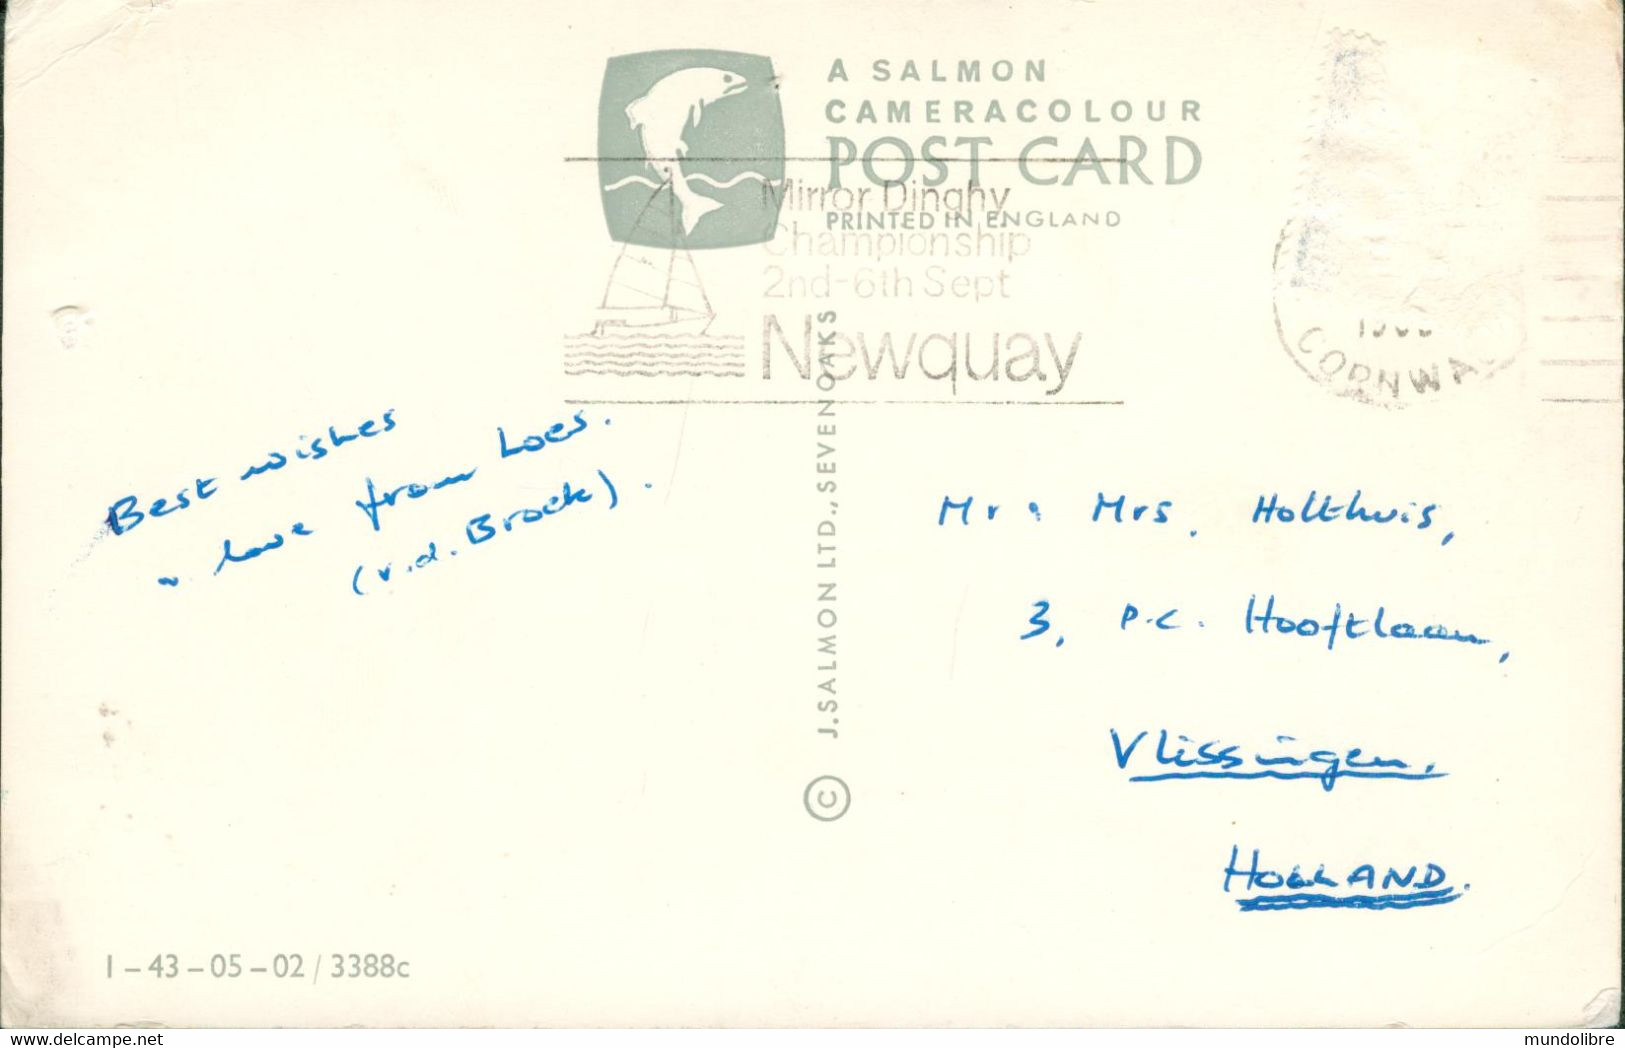 A SALMON
CAMERACOLOUR
POST CARD
PRINTED IN ENGLAND
Mirror Dinghy
Championship
2nd-6th Sept
Newquay
CORNWA
Best wishes
love from Loes.
(v.d. Broek).
J. SALMON LTD., SEVENOAKS ©
Mr & Mrs. Holthuis,
3, P.C. Hooftlaan,
Vlissingen.
HOLLAND.
1-43-05-02/3388c
delcampe.net
mundolibre